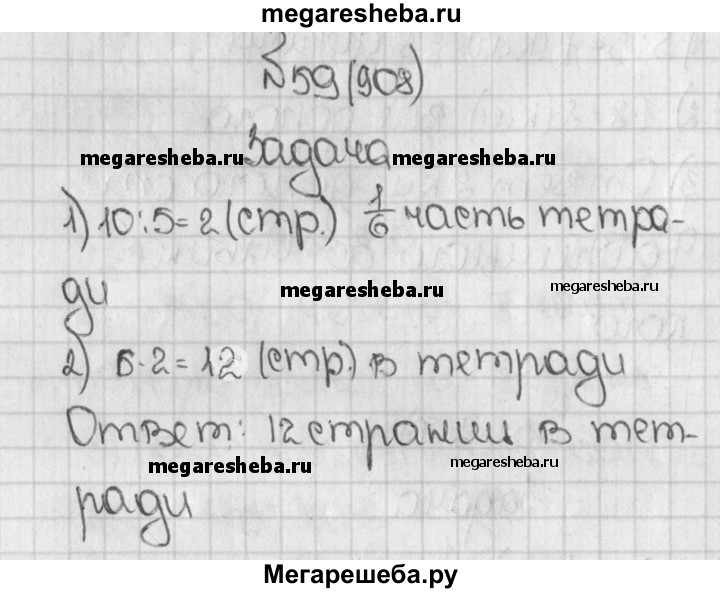 megaresheba.ru
№59(908)
megaresheba.ru Задача megaresheba.ru
1) 10:5=2 (стр.) 1/6 часть тетра-
ди megaresheba.ru megaresheba.ru
2) 6·2=12 (стр.) в тетради
Ответ: 12 страниц в тет-
megaresheba.ru megaresheba.ru
ради
Мегарешеба.ру